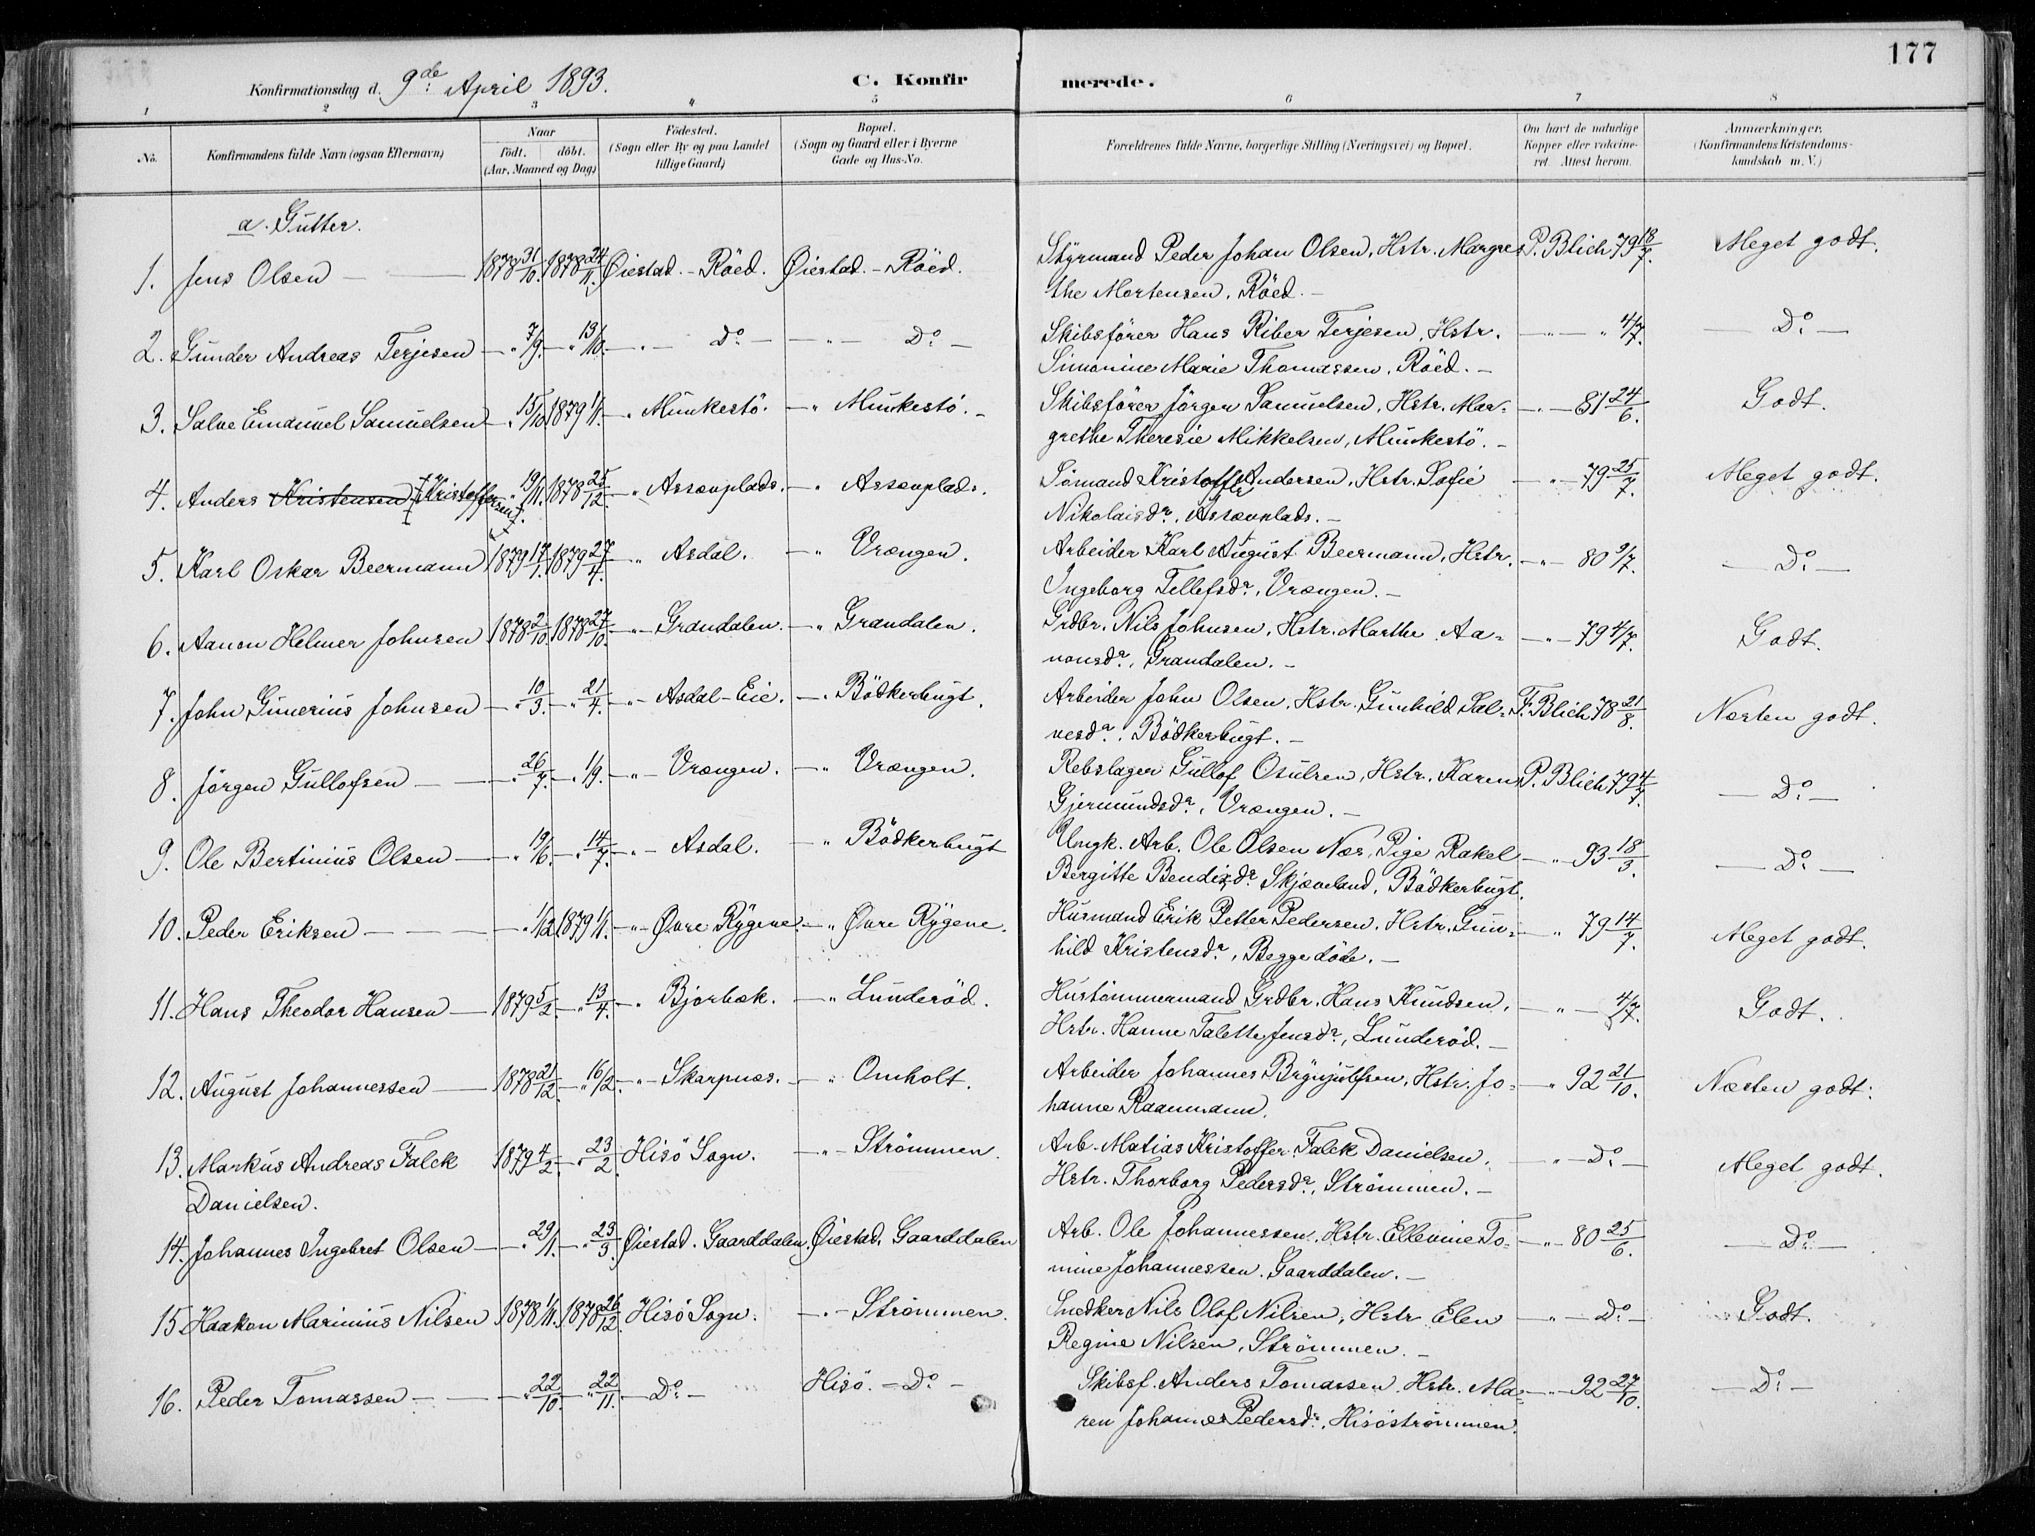 177
Konfirmationsdag d. 9de April 1893. C. Konfirmerede.
1 2 3 4 5 6 7 8
No. Konfirmandens fulde Navn (ogsaa Efternavn) Naar födt. döbt. (Aar, Maaned og Dag) Födested. (Sogn eller By og paa Landet tillige Gaard) Bopæl. (Sogn og Gaard eller i Byerne Gade og Hus-No. Forældrenes fulde Navne, borgerlige Stilling (Næringsvei) og Bopæl. Om havt de naturlige Kopper eller vakcineret. Attest herom. Anmærkninger. (Konfirmandens Kristendomskundskab m. V.)
a. Gutter.
1. Jens Olsen — 1878 31/10. 1878 24/11. Øiestad. - Röed. Øiestad. - Röed. Styrmand Peder Johan Olsen, Hstr. Margre- P. Blich 79 18/7. Meget godt.
the Mortensen, Röed. -
2. Gunder Andreas Terjesen — " 7/9. — " 13/10. — " — Do — — " — Do — Skibsförer Hans Riber Terjesen, Hstr. — " — " 4/7. — Do —
Simonine Marie Thomassen, Röed. -
3. Salve Emanuel Samuelsen — " 15/10. 1879 1/1. — " Munkestö. — " Munkestö. - Skibsförer Jörgen Samuelsen, Hstr. Mar- — " — 81 24/6. Godt.
grethe Theresie Mikkelsen, Munkestö. -
4. Anders Kristensen Kristoffersen. " 19/11. 1878 25/12. — " Assævplads. — " Assævplads. Sömand Kristoffer Andersen, Hstr. Sofie — " — 79 25/7. Meget godt.
Nikolaisdr., Assævplads. -
5. Karl Oskar Beermann 1879 17/1. 1879 27/4. — " Asdal. — " Vrængen. Arbeider Karl August Beermann, Hstr. — " — 80 9/7. — Do —
Ingeborg Tellefsdr., Vrængen. -
6. Aanon Helmer Johnsen 1878 2/10. 1878 27/10. — " — Grandalen. — " Grandalen. Grdbr. Nils Johnsen, Hstr. Marthe Aa- — " — 79 4/7. Godt.
nonsdr., Grandalen. -
7. John Gunerius Johnsen — " 10/3. — " 21/4. — " — Asdal-Eie. — " Bödkerbugt. Arbeider John Olsen, Hstr. Gunhild Sal- F. Blich 78 21/8. Næsten godt.
vesdr., Bödkerbugt. -
8. Jörgen Gullofsen — " 26/7. — " 1/9. — " — Vrængen. — " Vrængen. Rebslager Gullof Osulsen, Hstr. Karen P. Blich 79 4/7. — Do —
Gjermundsdr., Vrængen. -
9. Ole Bertinius Olsen — " 19/6. — " 14/7. — " — Asdal. — " Bödkerbugt Ungk. Arb. Ole Olsen Næs, Pige Rakel — " — 93 18/3. — Do —
Bergitte Bendixdr. Skjæveland, Bödkerbugt.
10. Peder Eriksen — " 1/12. 1879 1/1. — " — Øvre Rygene. — " Øvre Rygene. Husmand Erik Petter Pedersen, Hstr. Gun- — " 79 14/7. Meget godt.
hild Kristensdr., Begge döde. -
11. Hans Theodor Hansen — 1879 5/2. — " 13/4. — " Bjorbæk. — " Lunderöd. Hustömmermand Grdbr. Hans Knudsen, — " — 4/7. Godt.
Hstr. Hanne Talette Jensdr., Lunderöd. -
12. August Johannessen — 1878 21/12. — " 16/2. — " — Skarpnæs. — " Omholt. Arbeider Johannes Brynjulfsen, Hstr. Jo- — " 92 21/10. Næsten godt.
hanne Raanmann.
13. Markus Andreas Falck 1879 4/2. — " 23/2. Hisö Sogn. — " — Strömmen. Arb. Matias Kristoffer Falck Danielsen, — " — Do — Meget godt.
Danielsen. Hstr. Thorborg Pedersdr., Strömmen. -
14. Johannes Ingebret Olsen — " 29/1. — " 23/3. Øiestad. Gaarddalen. Øiestad. Gaarddalen Arb. Ole Johannessen, Hstr. Ellevine To- — " — 80 25/6. — Do —
mine Johannessen. Gaarddalen. -
15. Haakon Marinius Nilsen 1878 1/11. 1878 26/12. Hisö Sogn. — " — Strömmen. Snedker Nils Olaf Nilsen, Hstr. Elen — " — Do — Godt.
Regine Nilsen, Strömmen. -
16. Peder Tomassen — — " 22/10. — " 22/11. — Do — Hisö. — Do — Skibsf. Anders Tomassen, Hstr. Ma- — " — 92 27/10. — Do —
ren Johanne Pedersdr., Hisöströmmen.